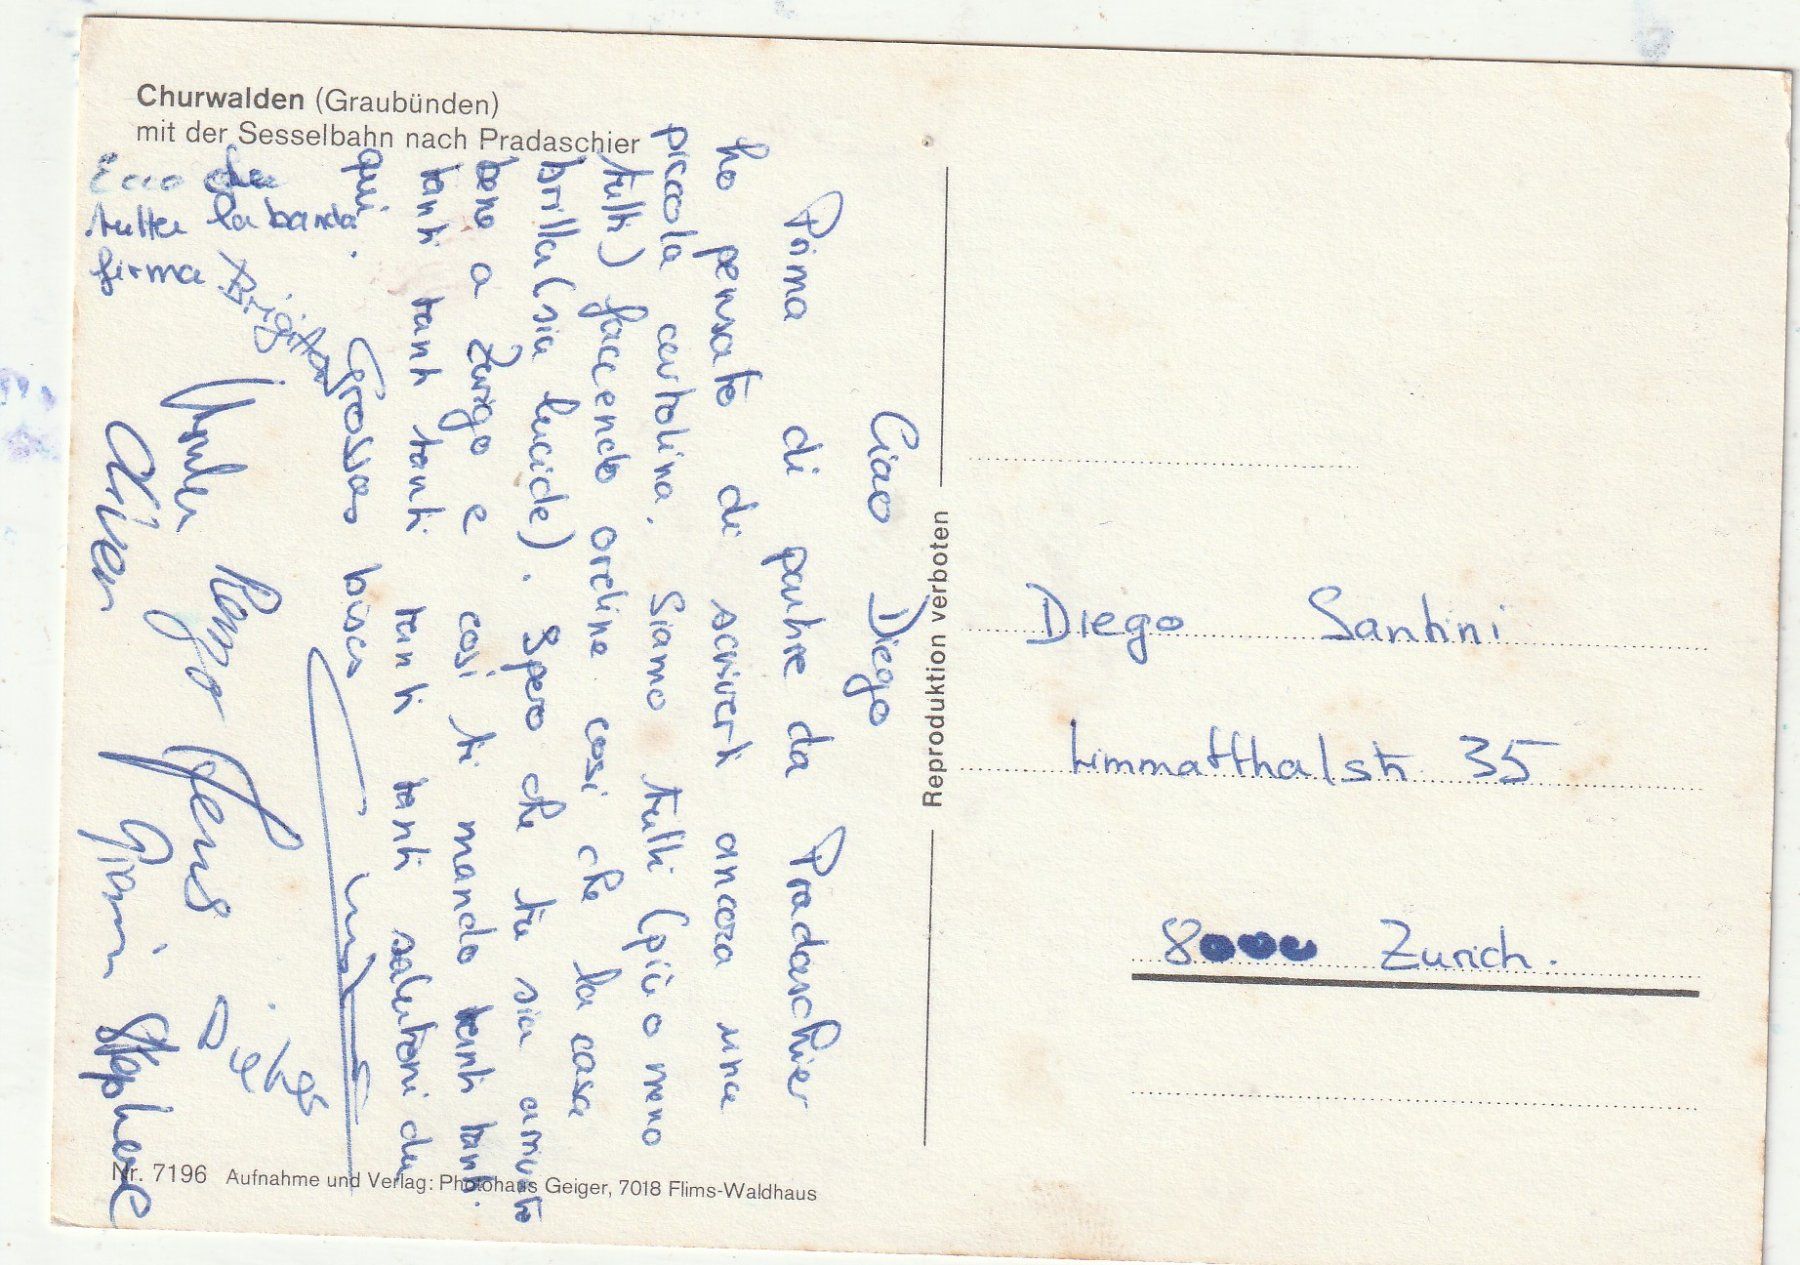 Churwalden (Graubünden)
mit der Sesselbahn nach Pradaschier
Ciao Diego
Prima di partire da Pradaschier
ho pensato di scriverti ancora una
piccola cartolina. Siamo tutti (più o meno
tutti) facendo ordine così che la casa
brilla (sia lucide). Spero che tu sia arrivato
bene a Zurigo e così ti mando tanti tanti
tanti tanti tanti tanti tanti salutoni da
qui.
Grosses bises
Ecco che
tutta la banda
firma Brigitta
Oliver
Remo
Jenus
Giani
Stephane
Reproduktion verboten
Diego Santini
Limmatthalstr 35
8000 Zurich.
Nr. 7196 Aufnahme und Verlag: Photohaus Geiger, 7018 Flims-Waldhaus